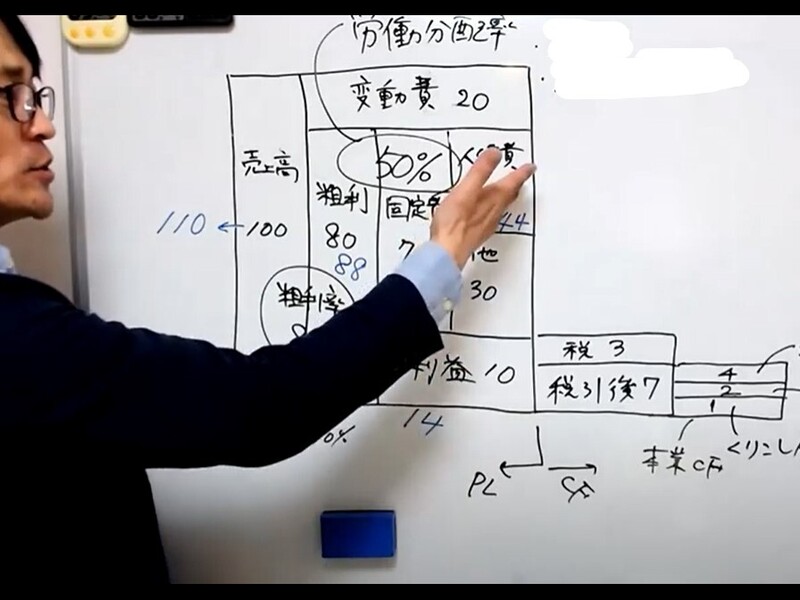 労働分配率
変動費 20
売上高
50%
粗利
固定
110 ← 100
80
7
44
88
他
30
粗利率
税 3
利益 10
税引後 7
4
2
1
14
0%
本業CF
くりこし
PL
CF